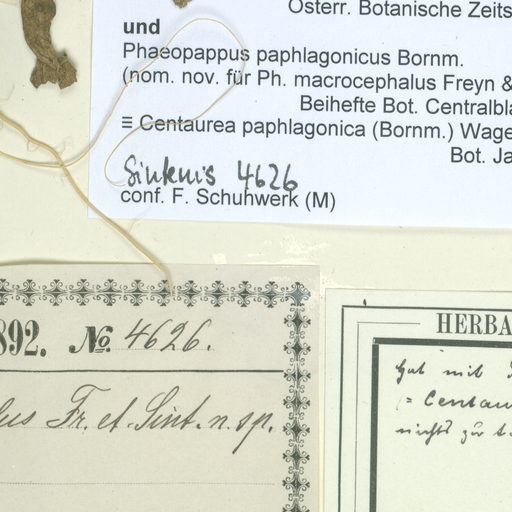 Österr. Botanische Zeits
und
Phaeopappus paphlagonicus Bornm.
(nom. nov. für Ph. macrocephalus Freyn &
Beihefte Bot. Centralbla
≡ Centaurea paphlagonica (Bornm.) Wage
Bot. Ja
Sintenis 4626
conf. F. Schuhwerk (M)
892. No. 4626.
lus Fr. et. Sint. n. sp.
HERBA
hat mit
= Centau
nichts zu t